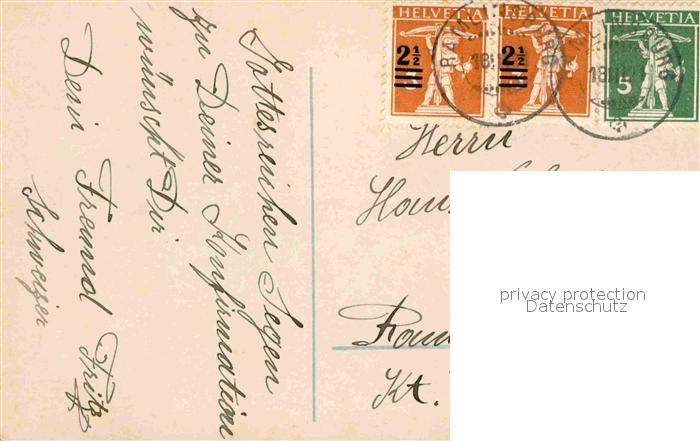 HELVETIA HELVETIA HELVETIA
2½ 2½ 5
Gottesreichen Segen
zu Deiner Konfirmation
wünscht Dir
Dein Freund Fritz
Schweizer
Herrn
Kt.
privacy protection
Datenschutz